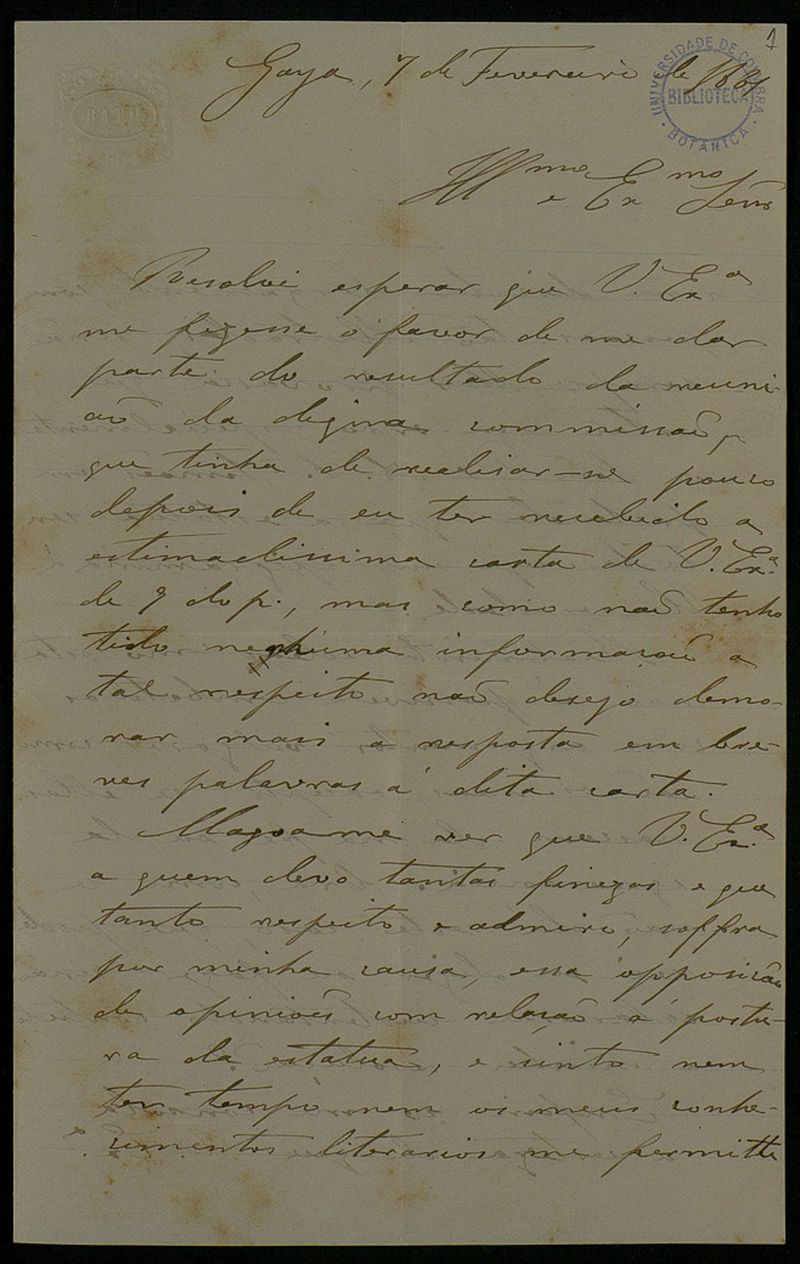 1
Gaya, 7 de Fevereiro de 1881
UNIVERSIDADE DE COIMBRA
BIBLIOTECA
BOTANICA
BATH
Illmo e Exmo Senr
Resolvi esperar que V. Exa
me fizesse o favor de me dar
parte do resultado da reuni-
aõ da digina commissaõ,
que tinha de realisar-se pouco
depois de eu ter recebido a
estimadissima carta de V. Exa
de 9 do p., mas como naõ tenho
tido nenhuma informacaõ a
tal respeito naõ desejo demo-
rar mais a resposta em bre-
ves palavras á dita carta.
Magoame ver que V. Exa
a quem devo tantas finezas e que
tanto respeito e admiro, soffra
por minha causa, essa opposicão
de opiniões com relação á postu-
ra da estatua, e sinto nem
ter tempo nem os meus conhe-
cimentos literarios me permitte